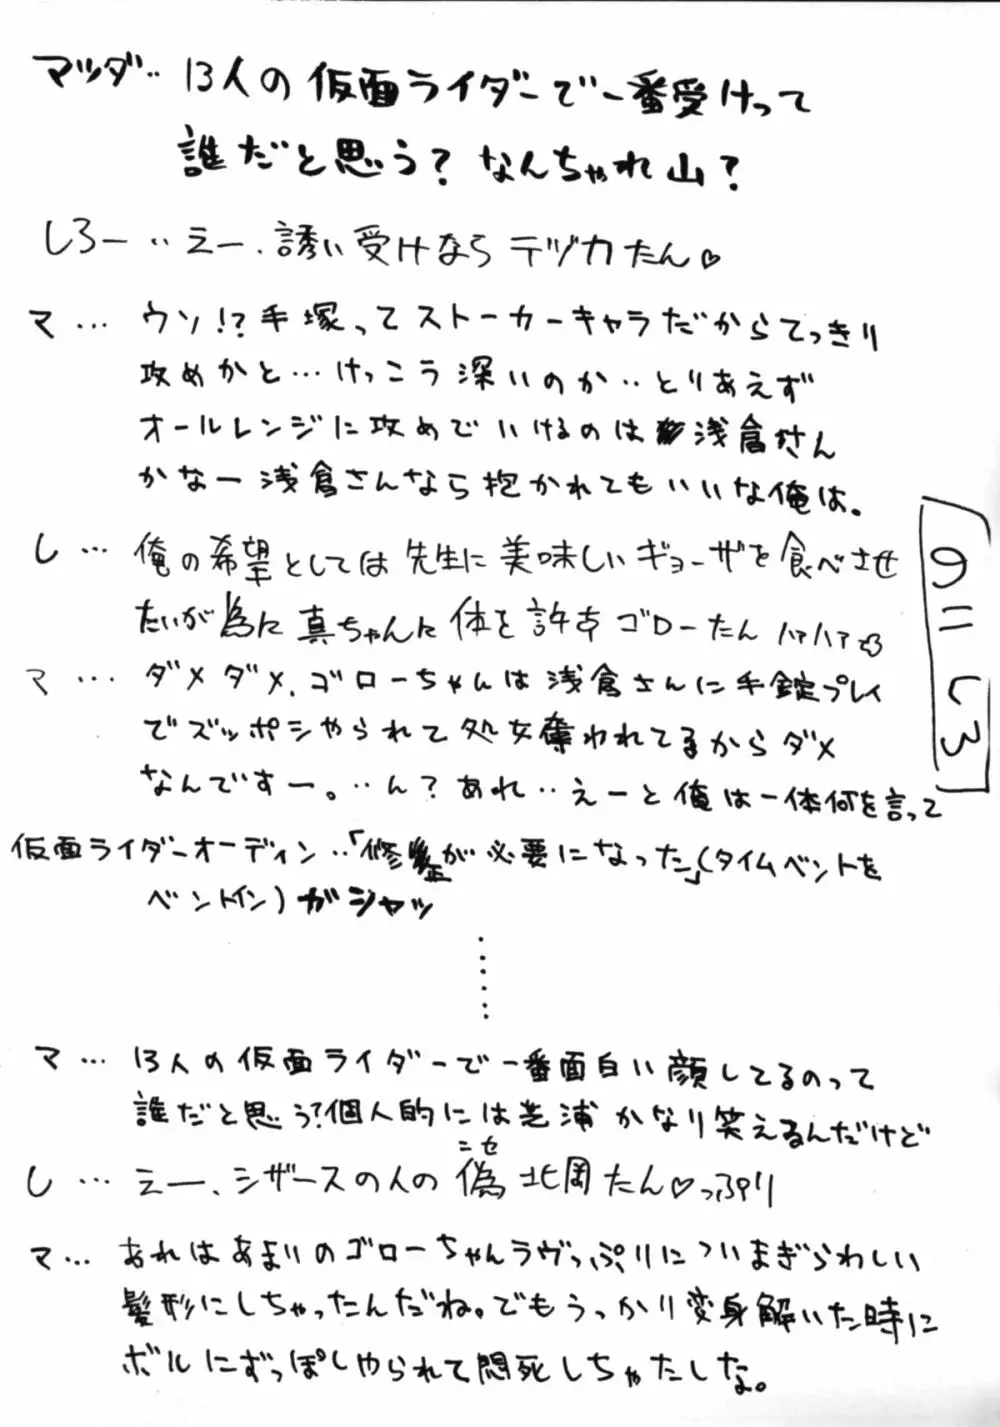 マツダ‥13人の仮面ライダーで一番受けって
誰だと思う？なんちゃれ山？
しろー‥えー、誘い受けなら テヅカたん♡
マ…ウソ!?手塚ってストーカーキャラだからてっきり
攻めかと…けっこう深いのか‥とりあえず
オールレンジに攻めでいけるのは浅倉さん
かなー浅倉さんなら抱かれてもいいな俺は。
し…俺の希望としては先生に美味しいギョーザを食べさせ
たいが為に真ちゃんに体を許すゴローたんハァハァ
マ…ダメダメ、ゴローちゃんは浅倉さんに手錠プレイ
でズッポシやられて処女奪われてるからダメ
なんですー。‥ん？あれ‥えーと俺は一体何を言って
仮面ライダーオーディン‥「修正が必要になった」(タイムベントを
ベントイン)ガシャッ
……
マ…13人の仮面ライダーで一番面白い顔してるのって
誰だと思う？個人的には芝浦かなり笑えるんだけど
し…えー、シザースの人の偽北岡たん♡っぷり
ニセ
マ…あれはあまりのゴローちゃんラヴっぷりについまぎらわしい
髪形にしちゃったんだね。でもうっかり変身解いた時に
ボルにずっぽしやられて悶死しちゃたしな。
のりしろ